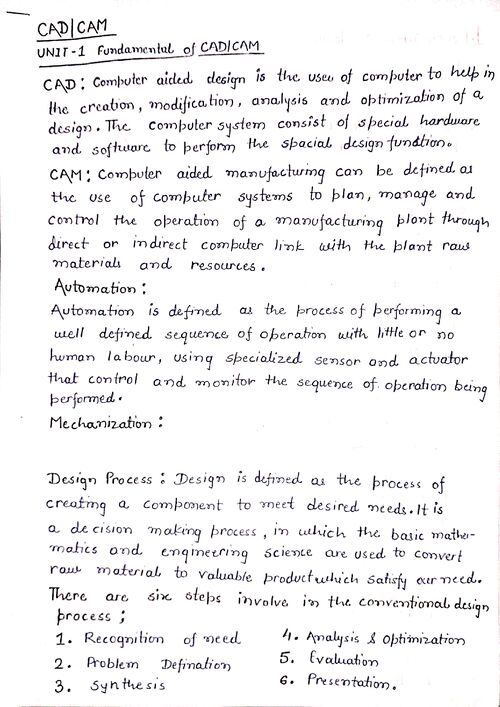 CAD|CAM
UNIT-1 Fundamental of CAD|CAM
CAD: Computer aided design is the use of computer to help in
the creation, modification, analysis and optimization of a
design. The computer system consist of special hardware
and software to perform the spacial design function.
CAM: Computer aided manufacturing can be defined as
the use of computer systems to plan, manage and
control the operation of a manufacturing plant through
direct or indirect computer link with the plant raw
materials and resources.
Automation:
Automation is defined as the process of performing a
well defined sequence of operation with little or no
human labour, using specialized sensor and actuator
that control and monitor the sequence of operation being
performed.
Mechanization:
Design Process: Design is defined as the process of
creating a component to meet desired needs. It is
a decision making process, in which the basic mathe-
matics and engineering science are used to convert
raw material to valuable product which satisfy our need.
There are six steps involve in the conventional design
process;
1. Recognition of need
2. Problem Defination
3. Synthesis
4. Analysis & Optimization
5. Evaluation
6. Presentation.